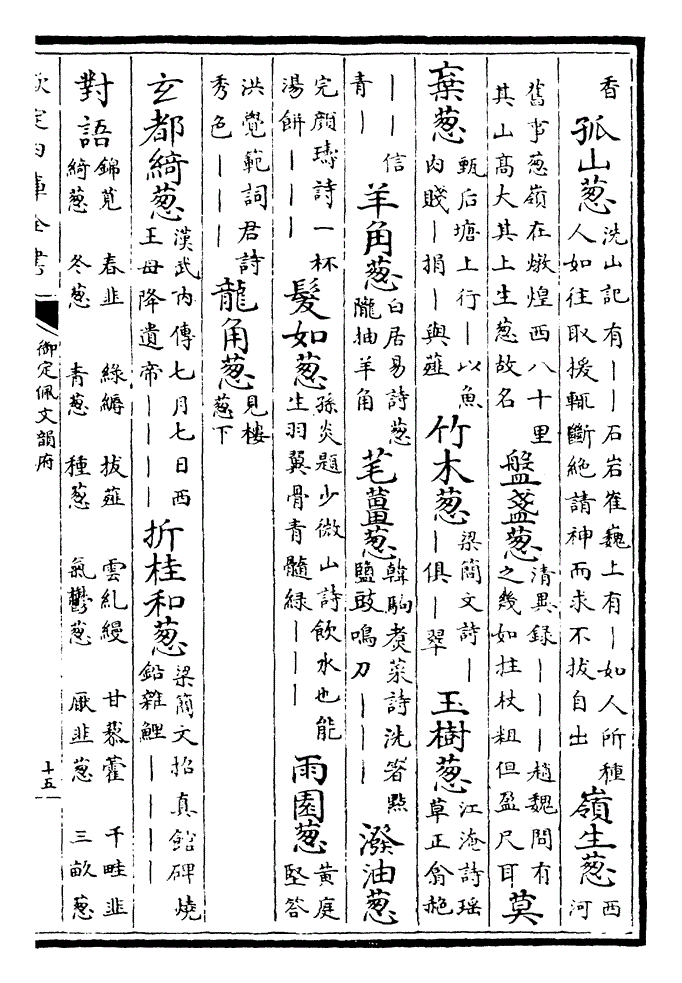 香 孤山葱 洗山記有——石岩崔巍上有—如人所種
人如往取援輒斷絶請神而求不拔自出 嶺生葱 西
河
舊事葱嶺在燉煌西八十里
其山高大其上生葱故名 盤盞葱 清異録———趙魏間有
之幾如拄杖粗但盈尺耳 莫
棄葱 甄后塘上行—以魚
肉賤—捐—與薤 竹木葱 梁簡文詩—
—俱—翠 玉樹葱 江淹詩瑶
草正翕赩
——信
青—— 羊角葱 白居易詩葱
隴抽羊角 芼薑葱 韓駒煑菜詩洗箸點
鹽豉鳴刀——— 潑油葱
完顔璹詩一杯
湯餅——— 髮如葱 孫炎題少微山詩飲水也能
生羽翼骨青髓緑——— 雨園葱 黄庭
堅答
洪覺範詞君詩
秀色——— 龍角葱 見樓
葱下
玄都綺葱 漢武内傳七月七日西
王母降遺帝———— 折桂和葱 梁簡文招真館碑燒
鉛雜鯉————
對語 錦筧 春韭 緑縟 拔薤 雲糺縵 甘藜藿 千畦韭
綺葱 冬葱 青葱 種葱 氣鬱葱 厭韭葱 三畝葱
欽定四庫全書
御定佩文韻府
十五